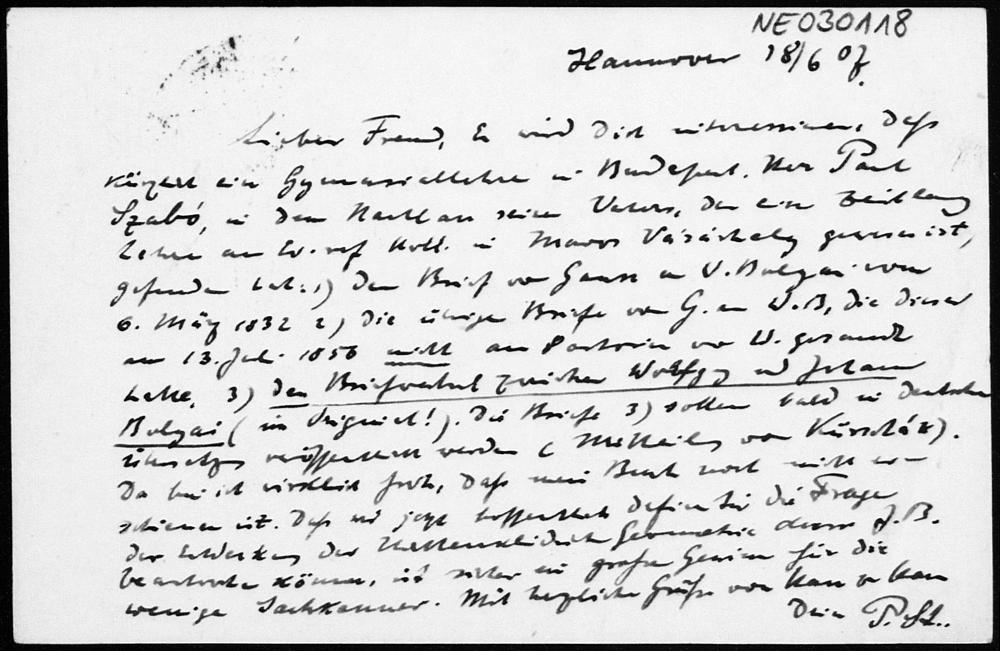 NE030118
Hannover 18/6 07.
Lieber Freund, Es wird Dich interessieren, daß
kürzlich ein Gymnasiallehrer in Budapest, Herr Paul
Szabó, in dem Nachlass seines Vaters, der eine Zeitlang
Lehrer am Ev. ref Koll. in Maros Vásárhely gewesen ist,
gefunden hat: 1) Den Brief von Gauss an W. Bolyai vom
6. März 1832 2) die übrigen Briefe von G. an W. B, die dieser
am 13. Juli 1856 nicht an Sartorius von W. gesandt
hatte, 3) den Briefwechsel zwischen Wolfgg und Johann
Bolyai (im Original!). Die Briefe 3) sollen bald in deutscher
Übersetzg veröffentlicht werden (Mitteilg von Kürschák).
Da bin ich wirklich froh, daß mein Buch noch nicht er-
schienen ist. Daß wir jetzt hoffentlich definitiv die Frage
der Entdeckung der Nichteuklidischen Geometrie durch J. B.
beantworten können, ist sicher ein großer Gewinn für die
wenigen Sachkenner. Mit herzlichen Grüßen von Haus zu Haus
Dein P. St.